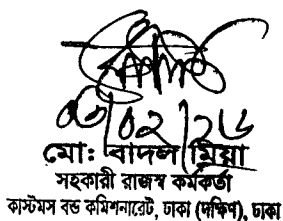 ০৩/০২/২৬
মো: বাদল মিয়া
সহকারী রাজস্ব কর্মকর্তা
কাস্টমস বন্ড কমিশনারেট, ঢাকা (দক্ষিণ), ঢাকা